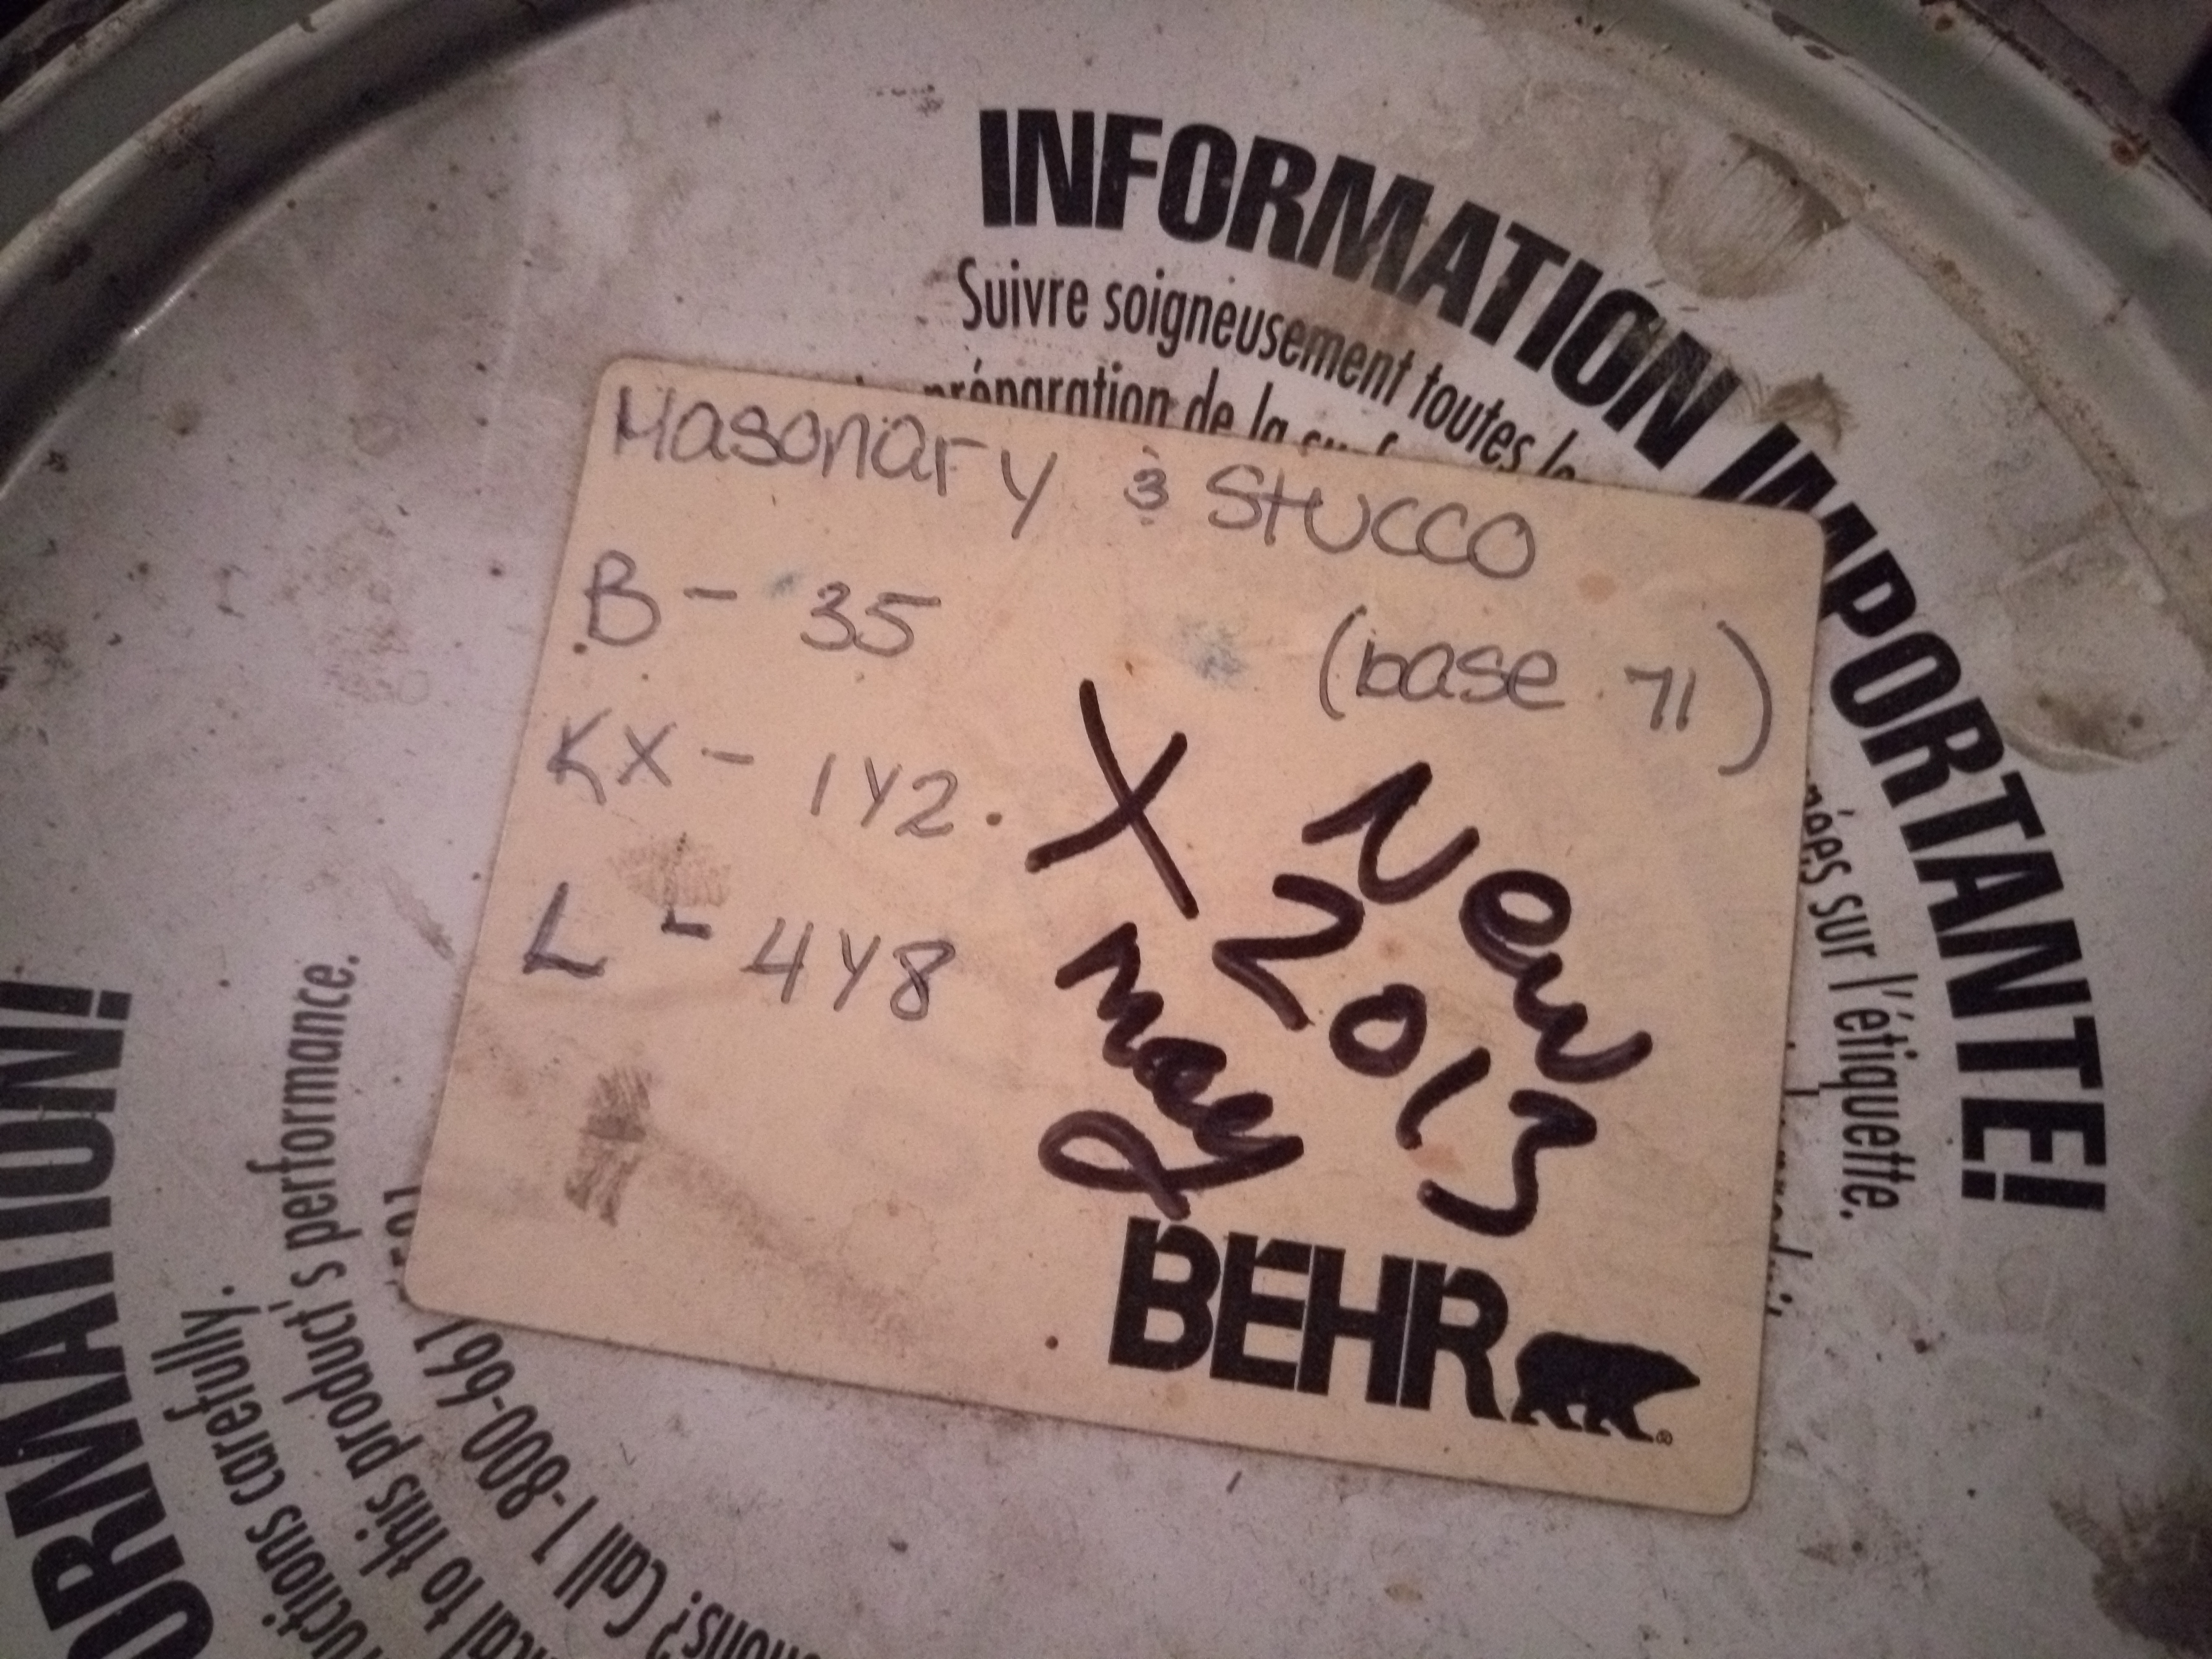 INFORMATION IMPORTANTE!
Suivre soigneusement toutes
préparation de la
sur l'étiquette.
Masonary & Stucco
B - 35
(base 71)
KX - 1Y2.
L - 4Y8
X New
2013
may
BEHR
ORMATION!
carefully.
to this product's performance.
Call 1-800-661